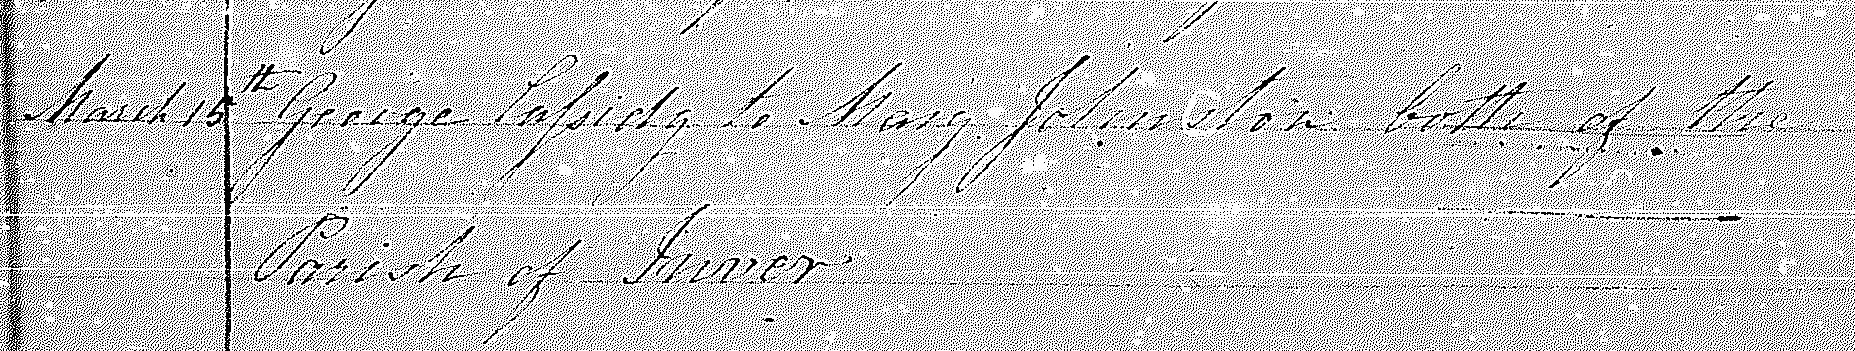 March 15th George Cassidy to Mary Johnston both of the
Parish of Inver